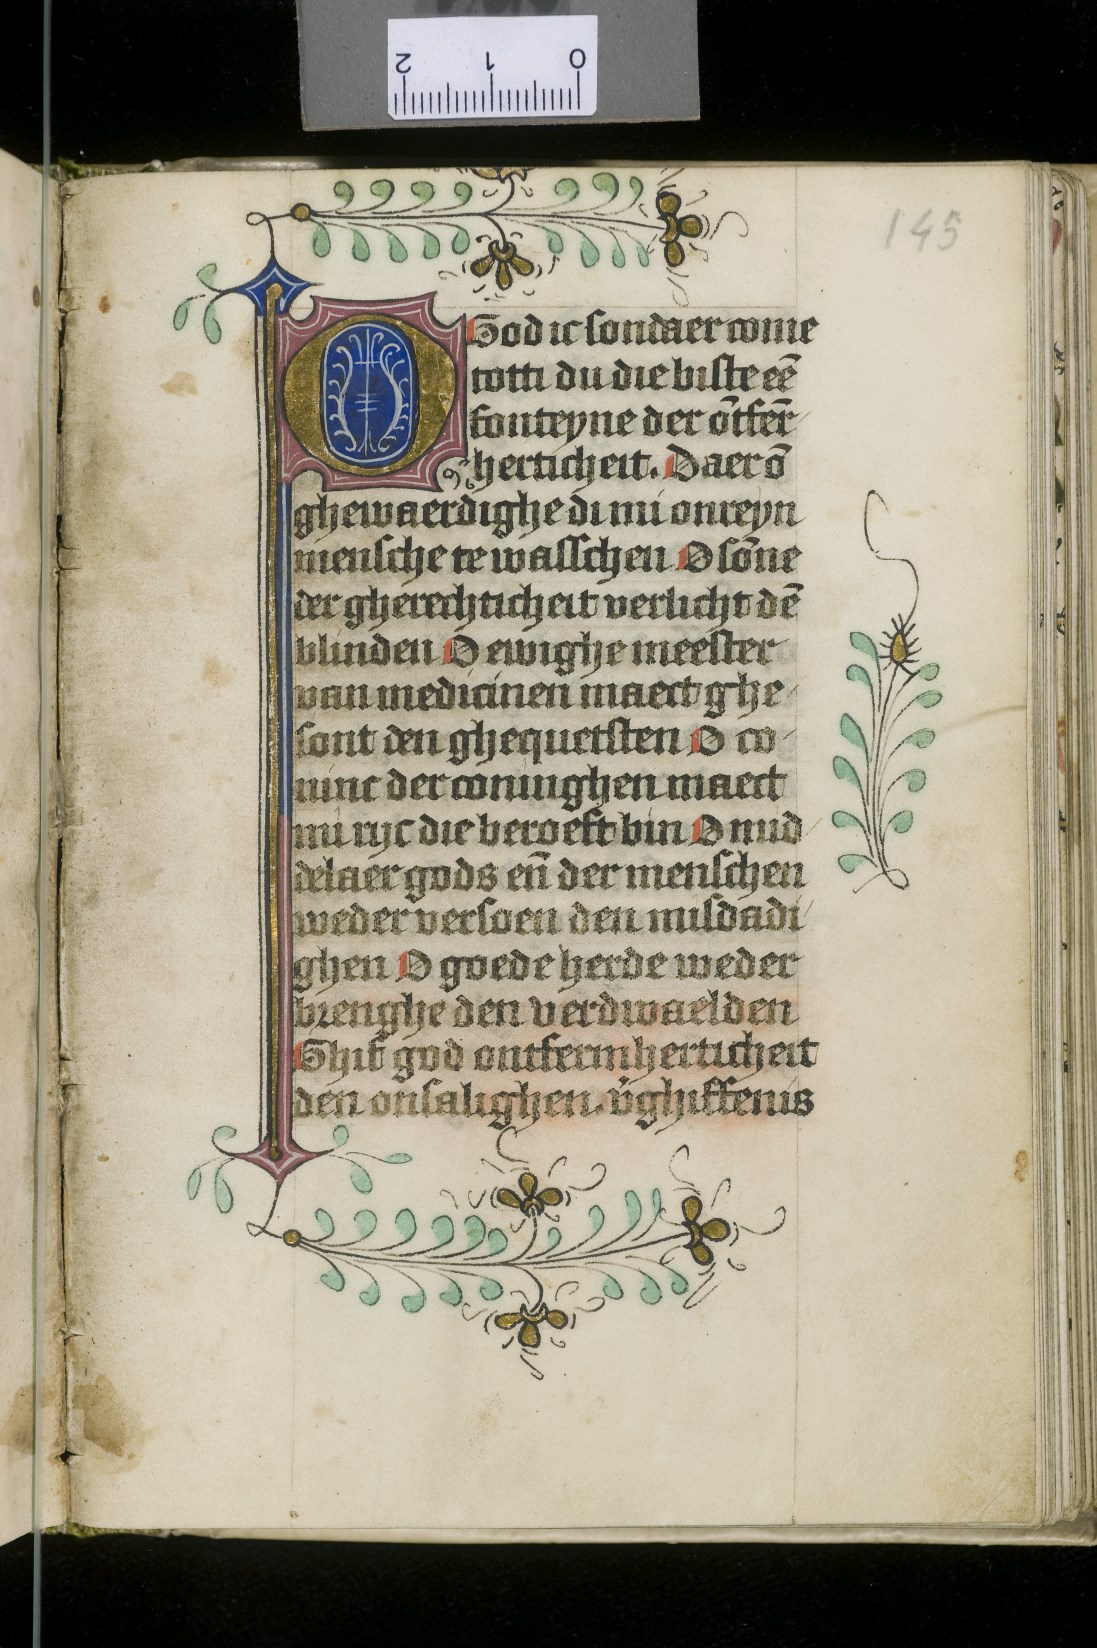 2 1 0
145
O God ic sondaer come
totti du die biste eē
fonteyne der ōtfer̄
herticheit. Daer ō
ghewaerdighe di mi onreyn
mensche te wasschen O sōne
der gherechticheit verlicht dē
blinden O ewighe meester
van medicinen maect ghe
sont den ghequetsten O co
ninc der coninghen maect
mi ryc die beroeft bin O mid
delaer gods en̄ der menschen
weder versoen den misdadi
ghen O goede herde weder
brenghe den verdwaelden
Ghif god ontfermherticheit
den onsalighen. v̉ghiffenis